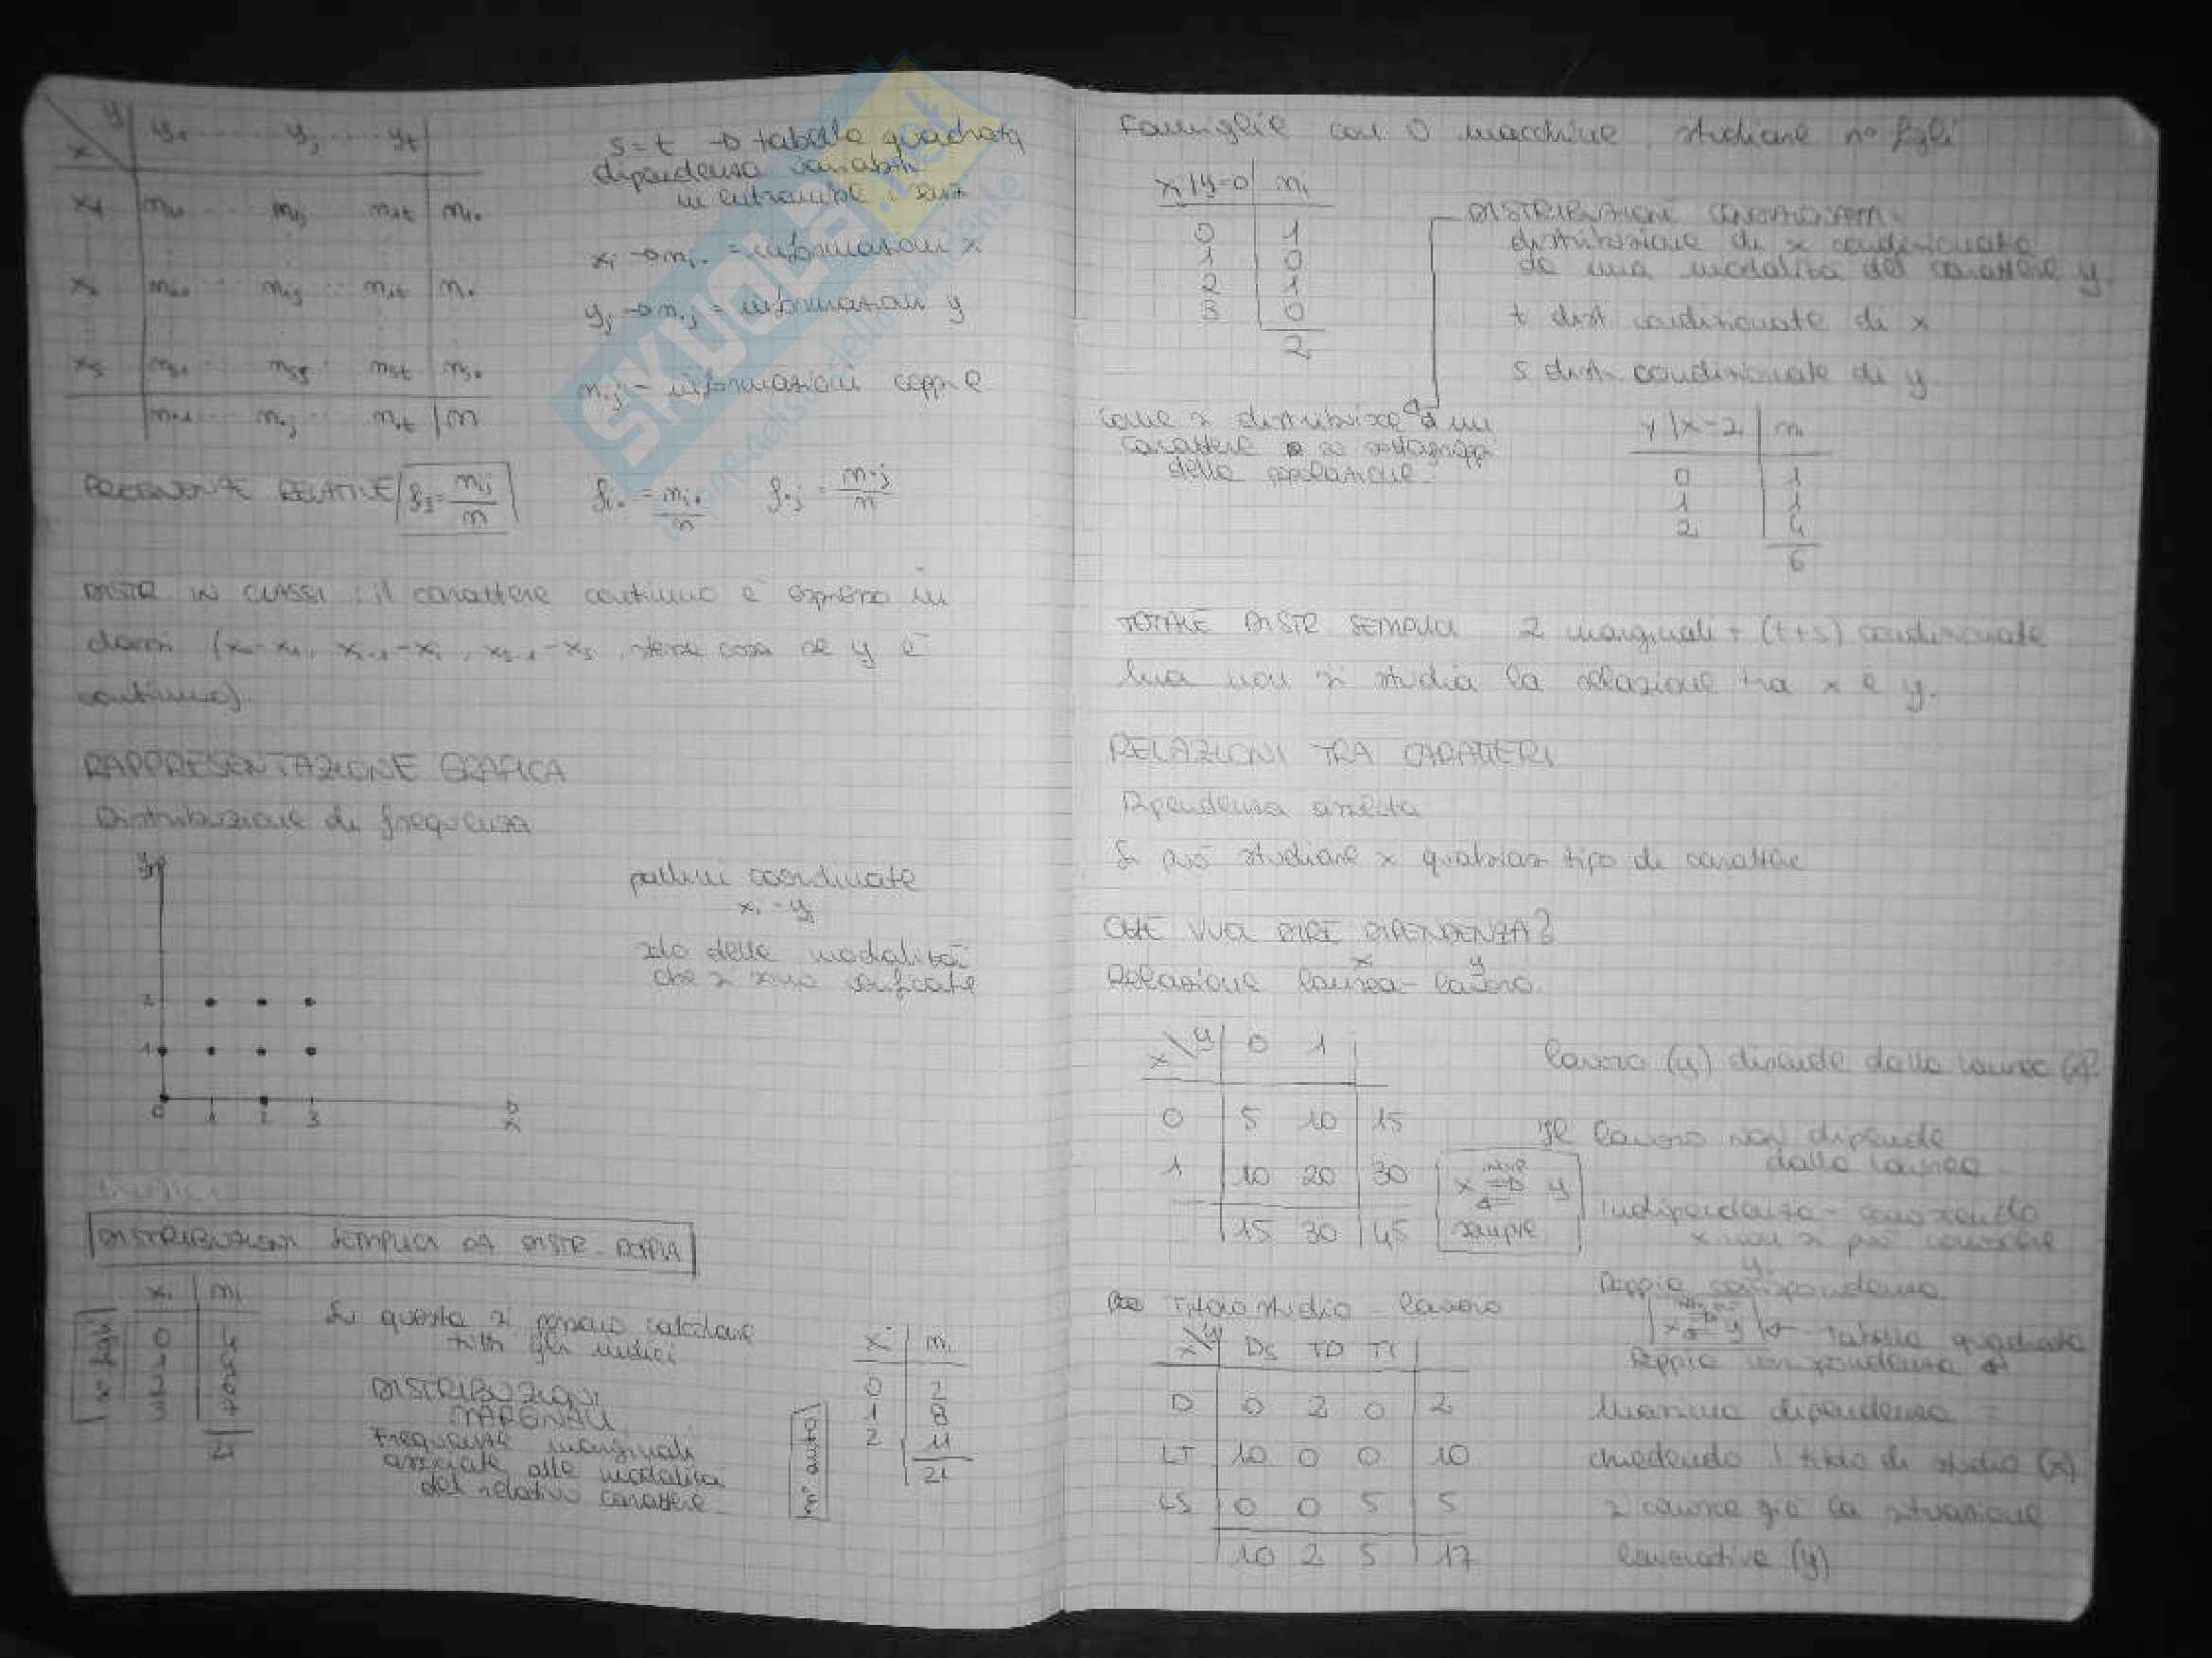 x \ y | y1 ..... yj ..... yt
x1 | n11 ... n1j n1t | n1.
xi | ni1 ... nij ... nit | ni.
xs | ns1 ... nsj ... nst | ns.
n.1 ... n.j ... n.t | n
s=t → tabella quadrata
dipendenza
in entrambi i sensi
xi → ni. = informazioni x
yj → n.j = informazioni y
nij = informazioni coppie
FREQUENZE RELATIVE fij = nij/n fi. = ni./n f.j = n.j/n
DISTR IN CLASSI : il carattere continuo è espresso in
classi (x0-x1, xi-1-xi, xs-1-xs, stessa cosa se y è
continuo).
RAPPRESENTAZIONE GRAFICA
Distribuzione di frequenza
pallini coordinate
xi - yj
solo delle modalità
che si sono verificate
2
1
0 1 2 3
DISTRIBUZIONI SEMPLICI DA DISTR. DOPPIA
xi | ni
0
1
2
3
21
n° figli
Su questa si possono calcolare
tutti gli indici
DISTRIBUZIONI
MARGINALI
Frequenze marginali
associate alle modalità
del relativo carattere
n° auto
ni
0 2
1 8
2 11
21
SKUOLA.net
Famiglie con 0 macchine studiare n° figli
xi|y=0 | ni
0 1
1 0
2 1
3 0
2
DISTRIBUZIONI
distribuzione di x condizionata
da una modalità del carattere y.
t dist. condizionate di x
s distr condizionate di y
come si distribuisce un
carattere
della popolazione.
y|x=2 | ni
0 1
1 1
2 4
6
TOTALE DISTR SEMPLICI 2 marginali + (t+s) condizionate
ma non si studia la relazione tra x e y.
RELAZIONI TRA CARATTERI
Dipendenza assoluta
Si può studiare x qualsiasi tipo di carattere
CHE VUOL DIRE DIPENDENZA?
x y
Relazione laurea - lavoro.
x \ y | 0 1
0 | 5 10 | 15
1 | 10 20 | 30
15 30 | 45
x y
sempre
lavoro (y) dipende dalla laurea (x)?
Il lavoro non dipende
dalla laurea
Indipendenza - conoscendo
x non si può conoscere
y.
Titolo studio - lavoro
Doppia corrispondenza
x y tabella quadrata
Doppia corrispondenza
x \ y | Ds TD TI
D | 0 2 0 | 2
LT | 10 0 0 | 10
LS | 0 0 5 | 5
10 2 5 | 17
Massima dipendenza
chiedendo il titolo di studio (x)
si conosce già la situazione
lavorativa (y)